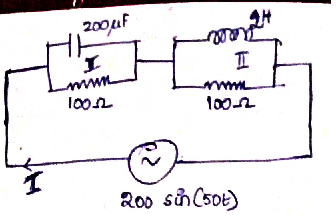 200μF
2H
I
II
100Ω
100Ω
I
200 sin(50t)